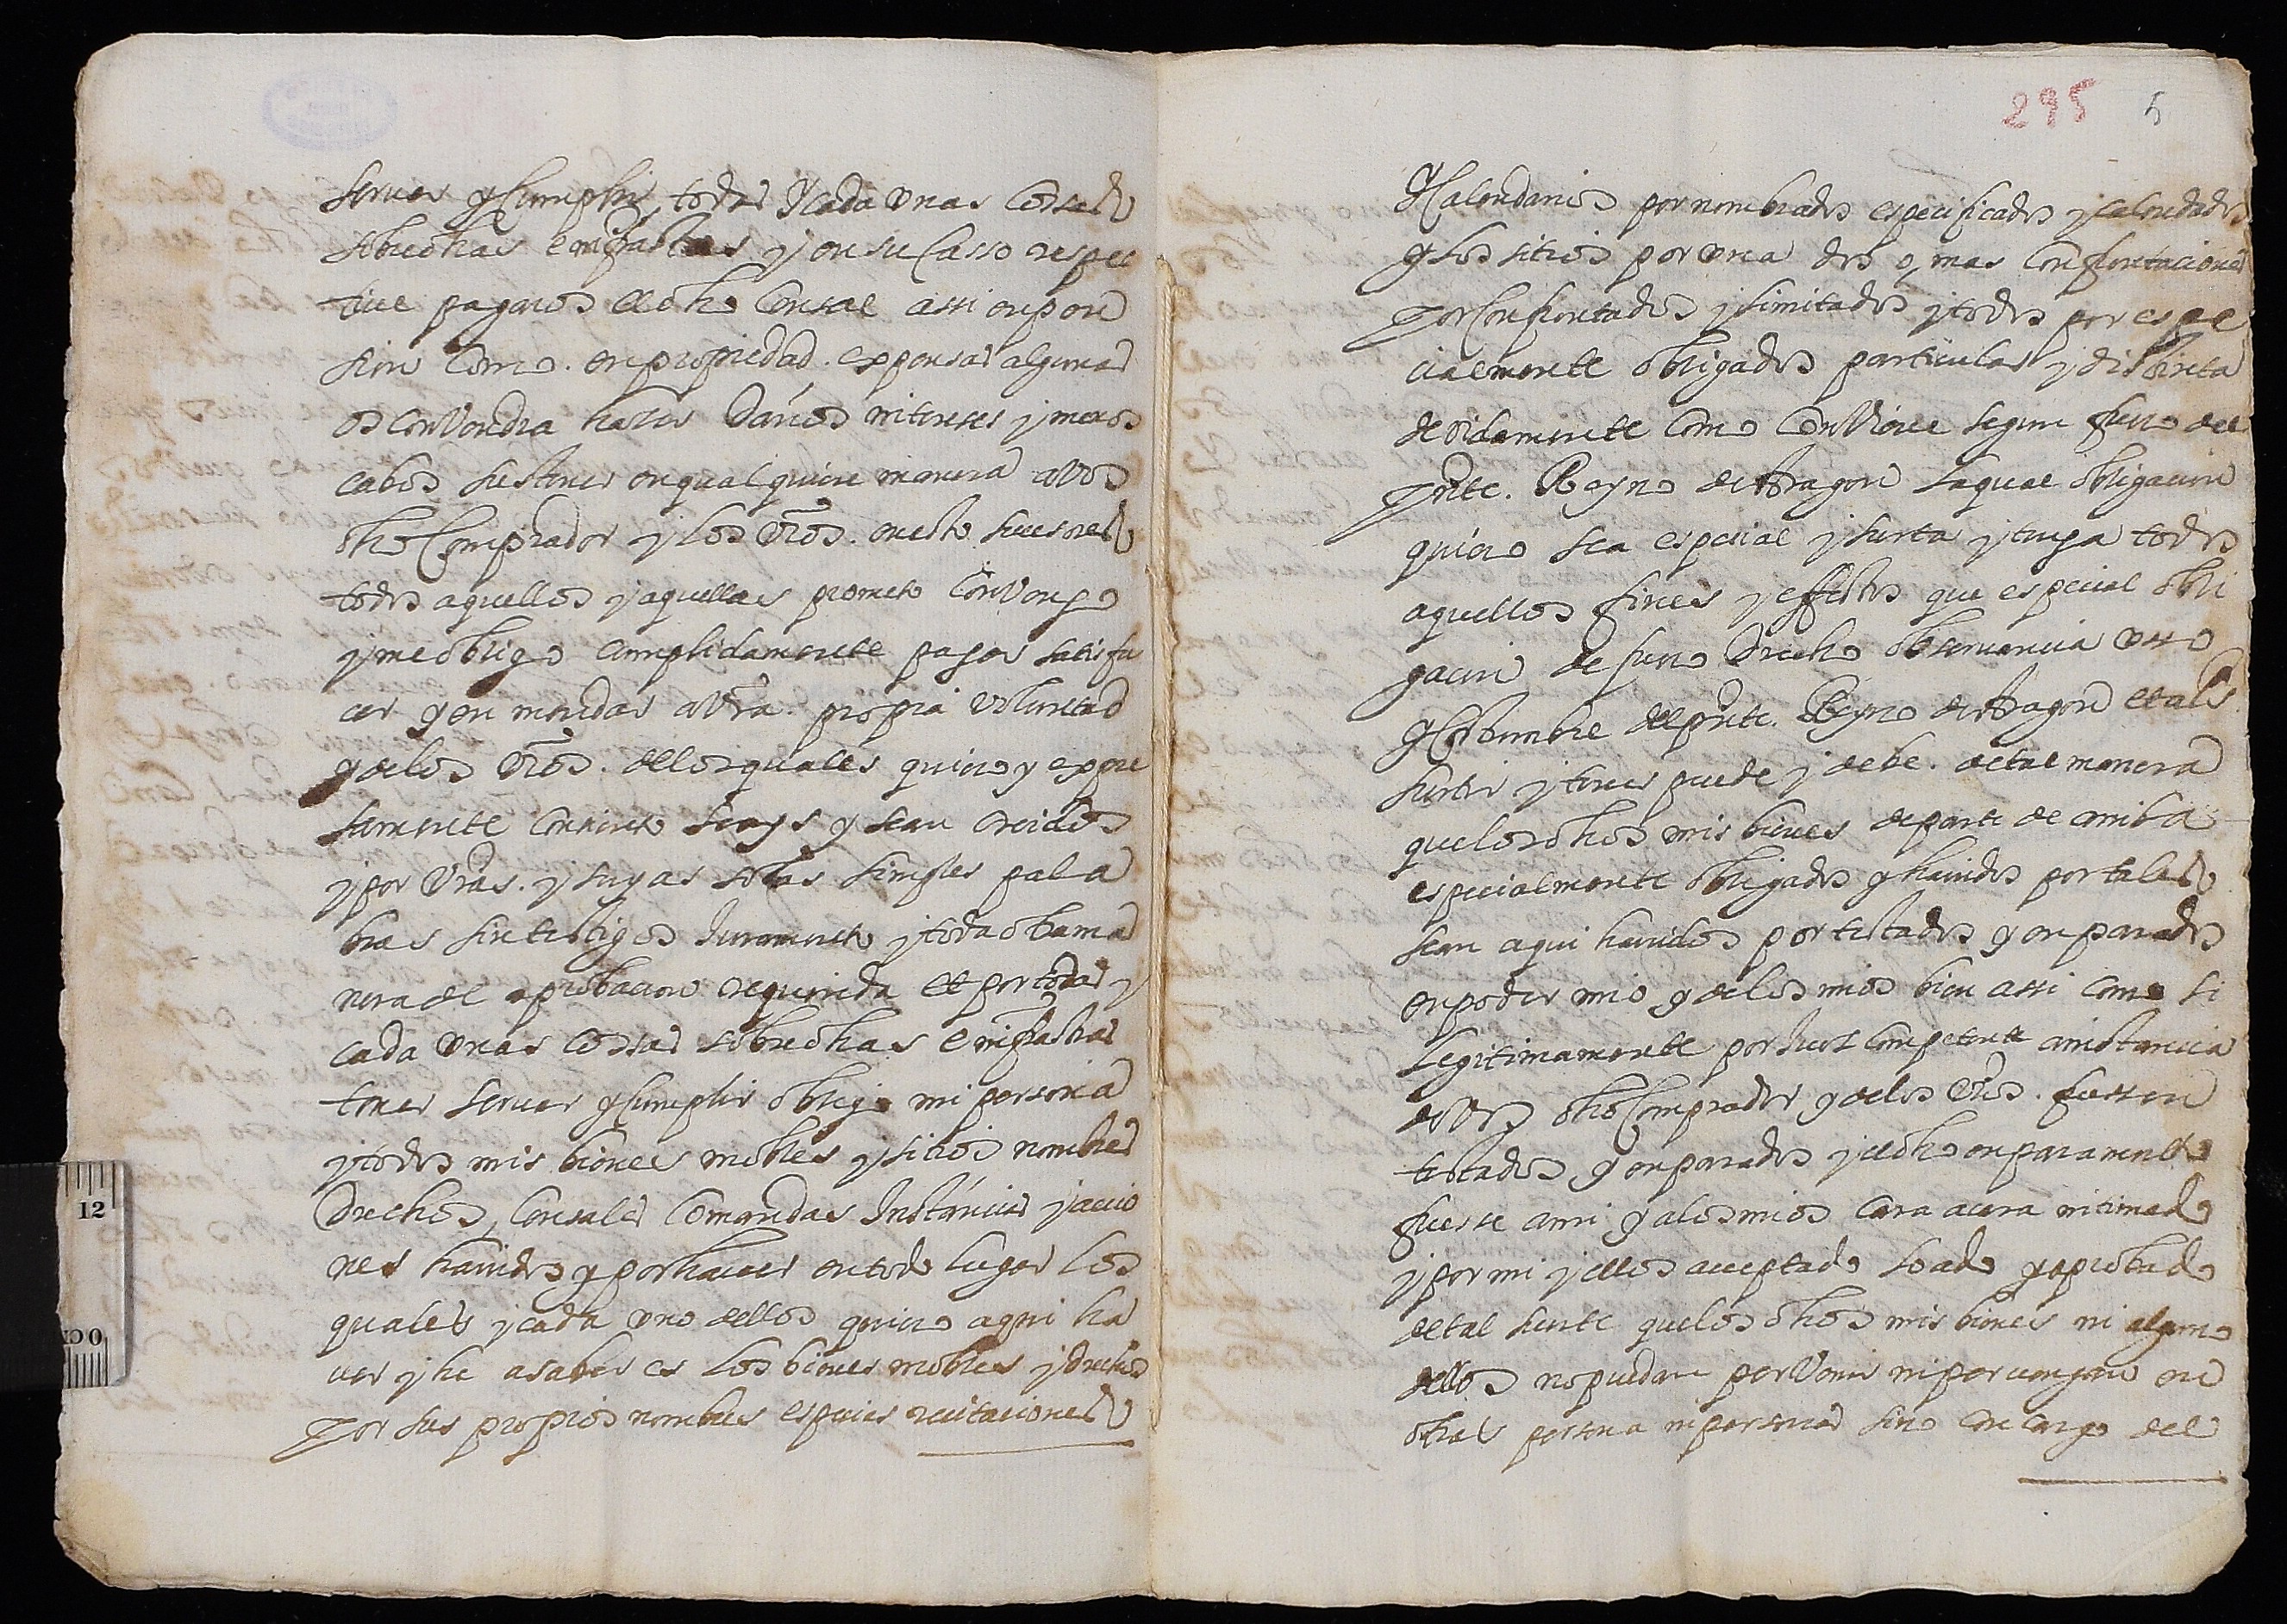 seruar y cumplir todas y cada vnas cossas
sobredhas e infrastas y en su casso respec
tiue pagaros el dho censal assi en pen
sion como en propiedad expensas algunas
os conuendra hazer daños interesses y menos
cabos sustener en qualquiere manera a vos
dho comprador y los vros en esto sucesores
todos aquellos y aquellas prometo conuengo
y me obligo cumplidamente pagar satisfa
cer y enmendar a vra propia voluntad
y de los vros de los quales quiero y expre
samente consiento seays y sean creidos
y por vras y suyas solas simples pala
bras sin testigos juramento y toda otra ma
nera de aprobacion requirida et por todas y
cada vnas cossas sobredhas e infrastas
tener seruar y cumplir obligo mi persona
y todos mis bienes mobles y sitios nombres
drechos, censales comandas instancias y accio
nes hauidos y por hauer en todo lugar los
quales y cada vno dellos quiero aqui ha
uer y he a saber es los bienes mobles y drechos
por sus propios nombres especies recitaciones
295 5
y calendarios por nombrados especificados y calendados
y los sitios por vna dos o, mas confrontaciones
por confrontados y limitados y todos por espe
cialmente obligados particular y distincta
deuidamente como conuiene segun fuero del
pnte. Reyno de Aragon la qual obligacion
quiero sea especial y surta y tenga todos
aquellos fines y effectos que especial obli
gacion de fuero drecho obseruancia vsso
y costumbre del pnte. Reyno de Aragon et als
surtir y tener puede y debe. de tal manera
que los dhos mis bienes de parte de arriba
especialmente obligados y hauidos por tales
sean aqui hauidos por tistados y enparados
en poder mio y de los mios bien assi como si
legitimamente por juez competente a instancia
de vos dho comprador y de los vros. fuessen
tistados y enparados y el dho enparamento
fuesse a mi y a los mios cara a cara intimado
y por mi y ellos acceptado loado y aprobado
de tal suerte que los dhos mis bienes ni alguno
dellos no puedan peruenir ni peruengan en
otras persona ni personas sino con cargo del